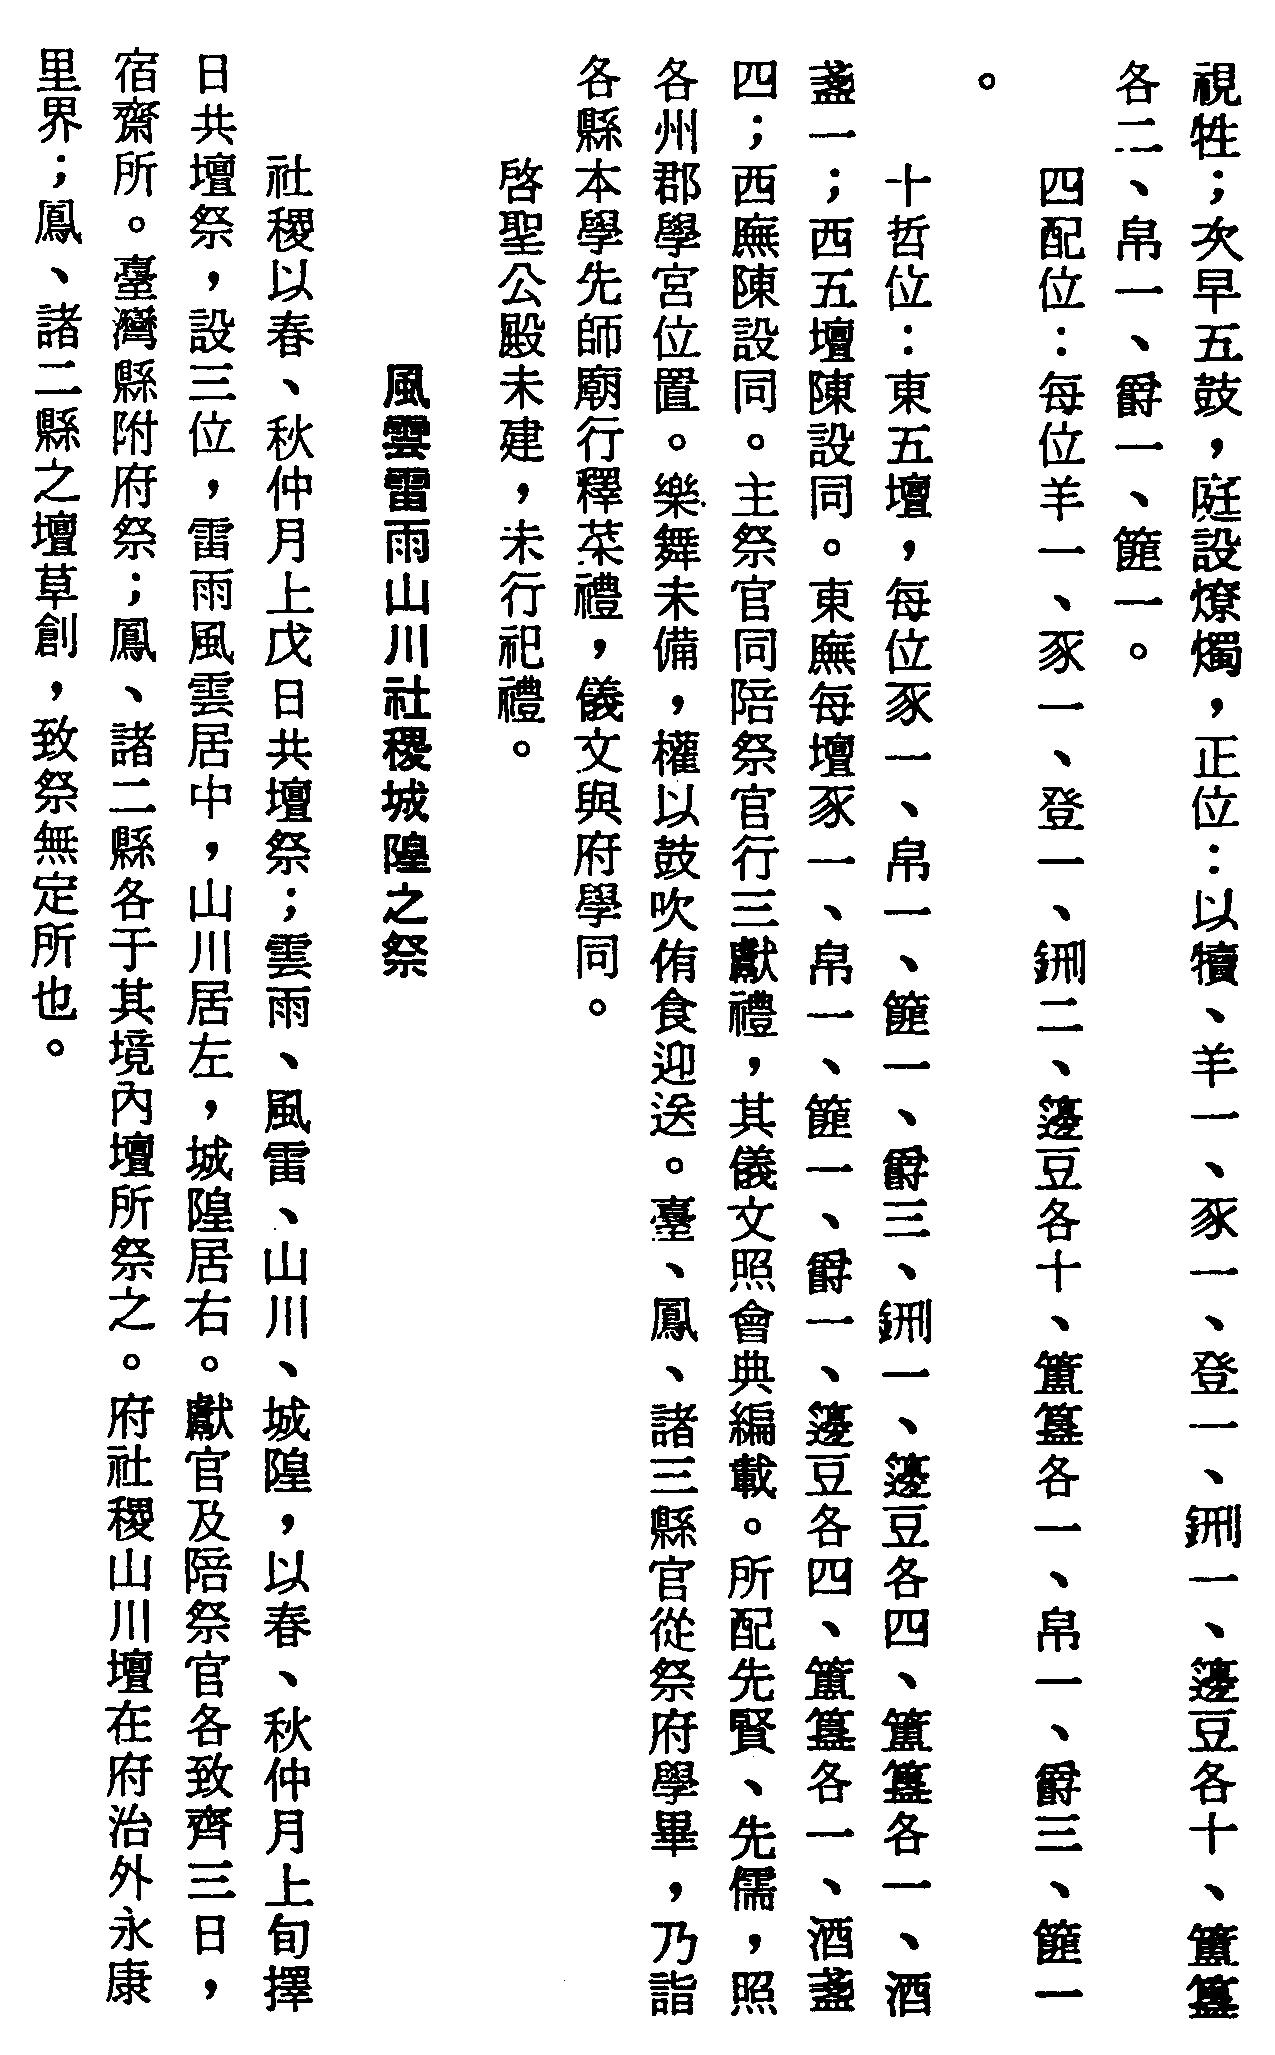 視牲；次早五鼓，庭設燎燭，正位：以犢、羊一、豕一、登一、鉶一、籩豆各十、簠簋
各二、帛一、爵一、篚一。
四配位：每位羊一、豕一、登一、鉶二、籩豆各十、簠簋各一、帛一、爵三、篚一
。
十哲位：東五壇，每位豕一、帛一、篚一、爵三、鉶一、籩豆各四、簠簋各一、酒
盞一；西五壇陳設同。東廡每壇豕一、帛一、篚一、爵一、籩豆各四、簠簋各一、酒盞
四；西廡陳設同。主祭官同陪祭官行三獻禮，其儀文照會典編載。所配先賢、先儒，照
各州郡學宮位置。樂舞未備，權以鼓吹侑食迎送。臺、鳳、諸三縣官從祭府學畢，乃詣
各縣本學先師廟行釋菜禮，儀文與府學同。
啓聖公殿未建，未行祀禮。
風雲雷雨山川社稷城隍之祭
社稷以春、秋仲月上戊日共壇祭；雲雨、風雷、山川、城隍，以春、秋仲月上旬擇
日共壇祭，設三位，雷雨風雲居中，山川居左，城隍居右。獻官及陪祭官各致齊三日，
宿齋所。臺灣縣附府祭；鳳、諸二縣各于其境內壇所祭之。府社稷山川壇在府治外永康
里界；鳳、諸二縣之壇草創，致祭無定所也。